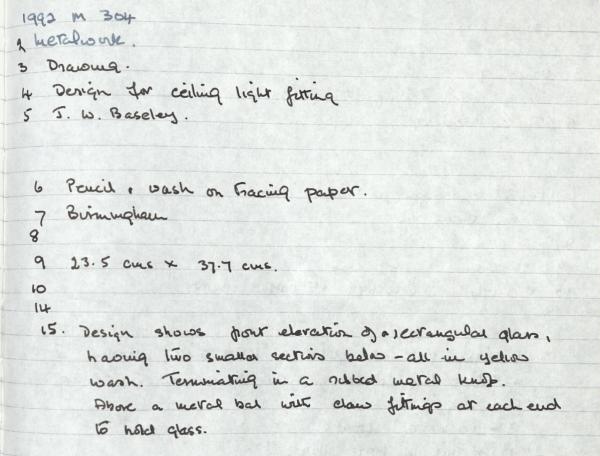 1992 M 304
2 Metalwork.
3 Drawing.
4 Design for ceiling light fitting
5 J. W. Baseley.
6 Pencil & wash on tracing paper.
7 Birmingham
8
9 23.5 cms x 37.7 cms.
10
14
15. Design shows front elevation of a rectangular glass,
having two smaller sections below - all in yellow
wash. Terminating in a ribbed metal knob.
Above a metal bar with claw fittings at each end
to hold glass.